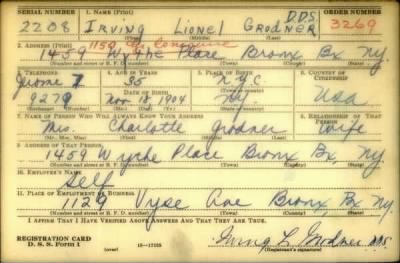 SERIAL NUMBER 1. NAME (Print) D.D.S. ORDER NUMBER
2208 Irving Lionel Grodner 3269
(First) (Middle) (Last)
2. ADDRESS (Print) 1150 Concourse
1459 Wythe Place Bronx Bx Ny.
(Number and street or R. F. D. number) (Town) (County) (State)
3. TELEPHONE 4. AGE IN YEARS 5. PLACE OF BIRTH 6. COUNTRY OF CITIZENSHIP
Jerome 7 35 N.Y.C.
DATE OF BIRTH
9279 Nov. 14 1904 Ny. USA
7. NAME OF PERSON WHO WILL ALWAYS KNOW YOUR ADDRESS 8. RELATIONSHIP OF THAT PERSON
Mrs. Charlotte Grodner wife
(Mr., Mrs., Miss) (First) (Middle) (Last)
9. ADDRESS OF THAT PERSON
1459 Wythe Place Bronx, Bx, Ny.
(Number and street or R. F. D. number) (Town) (County) (State)
10. EMPLOYER'S NAME
Self
11. PLACE OF EMPLOYMENT OR BUSINESS
1129 Vyse Ave Bronx, Bx Ny.
(Number and street or R. F. D. number) (Town) (County) (State)
I AFFIRM THAT I HAVE VERIFIED ABOVE ANSWERS AND THAT THEY ARE TRUE.
REGISTRATION CARD
D. S. S. Form 1 (over) 16-17105 Irving L. Grodner DDS.
(Registrant's signature)